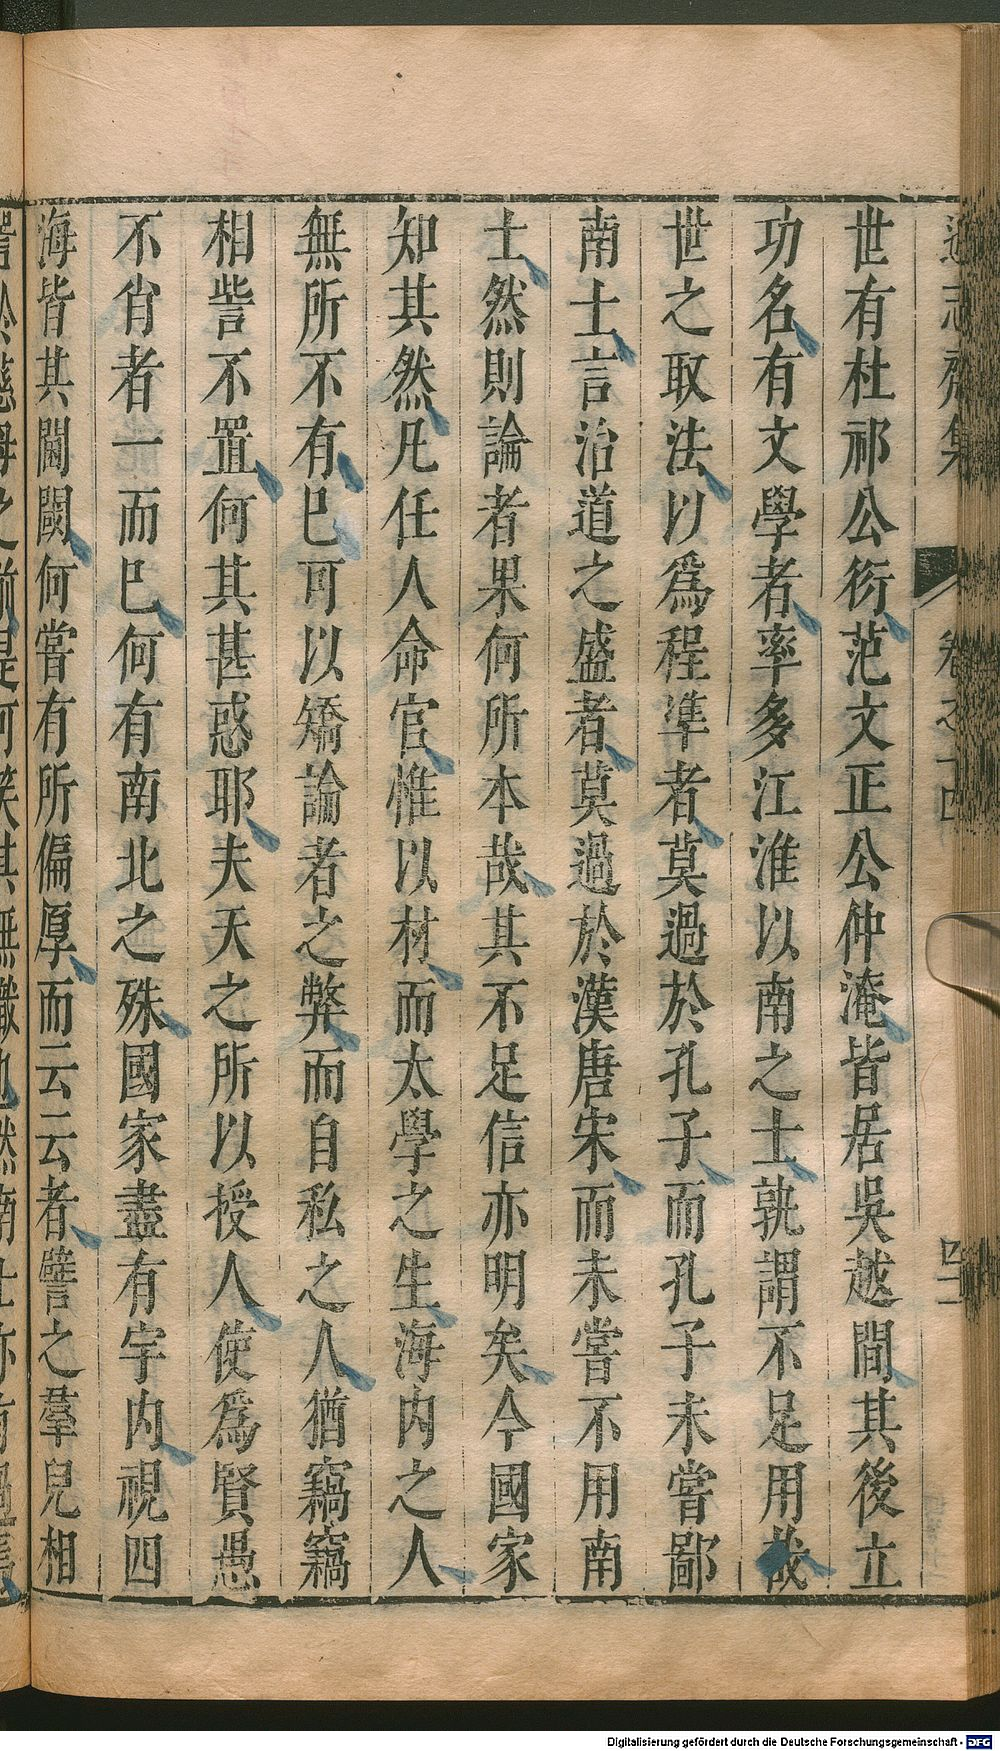 遜志齋集 卷之十四 四十一
世有杜祁公衍范文正公仲淹皆居吳越間其後立
功名有文學者率多江淮以南之士孰謂不足用哉
世之取法以爲程準者莫過於孔子而孔子未嘗鄙
南士言治道之盛者莫過於漢唐宋而未嘗不用南
士然則論者果何所本哉其不足信亦明矣今國家
知其然凡任人命官惟以材而太學之生海内之人
無所不有巳可以矯論者之弊而自私之人猶竊竊
相訾不置何其甚惑耶夫天之所以授人使爲賢愚
不肖者一而巳何有南北之殊國家盡有宇内視四
海皆其閫閾何嘗有所偏厚而云云者譬之羣兒相
詈於慈母之前是何笑其無識也然南士亦有過焉
Digitalisierung gefördert durch die Deutsche Forschungsgemeinschaft - DFG